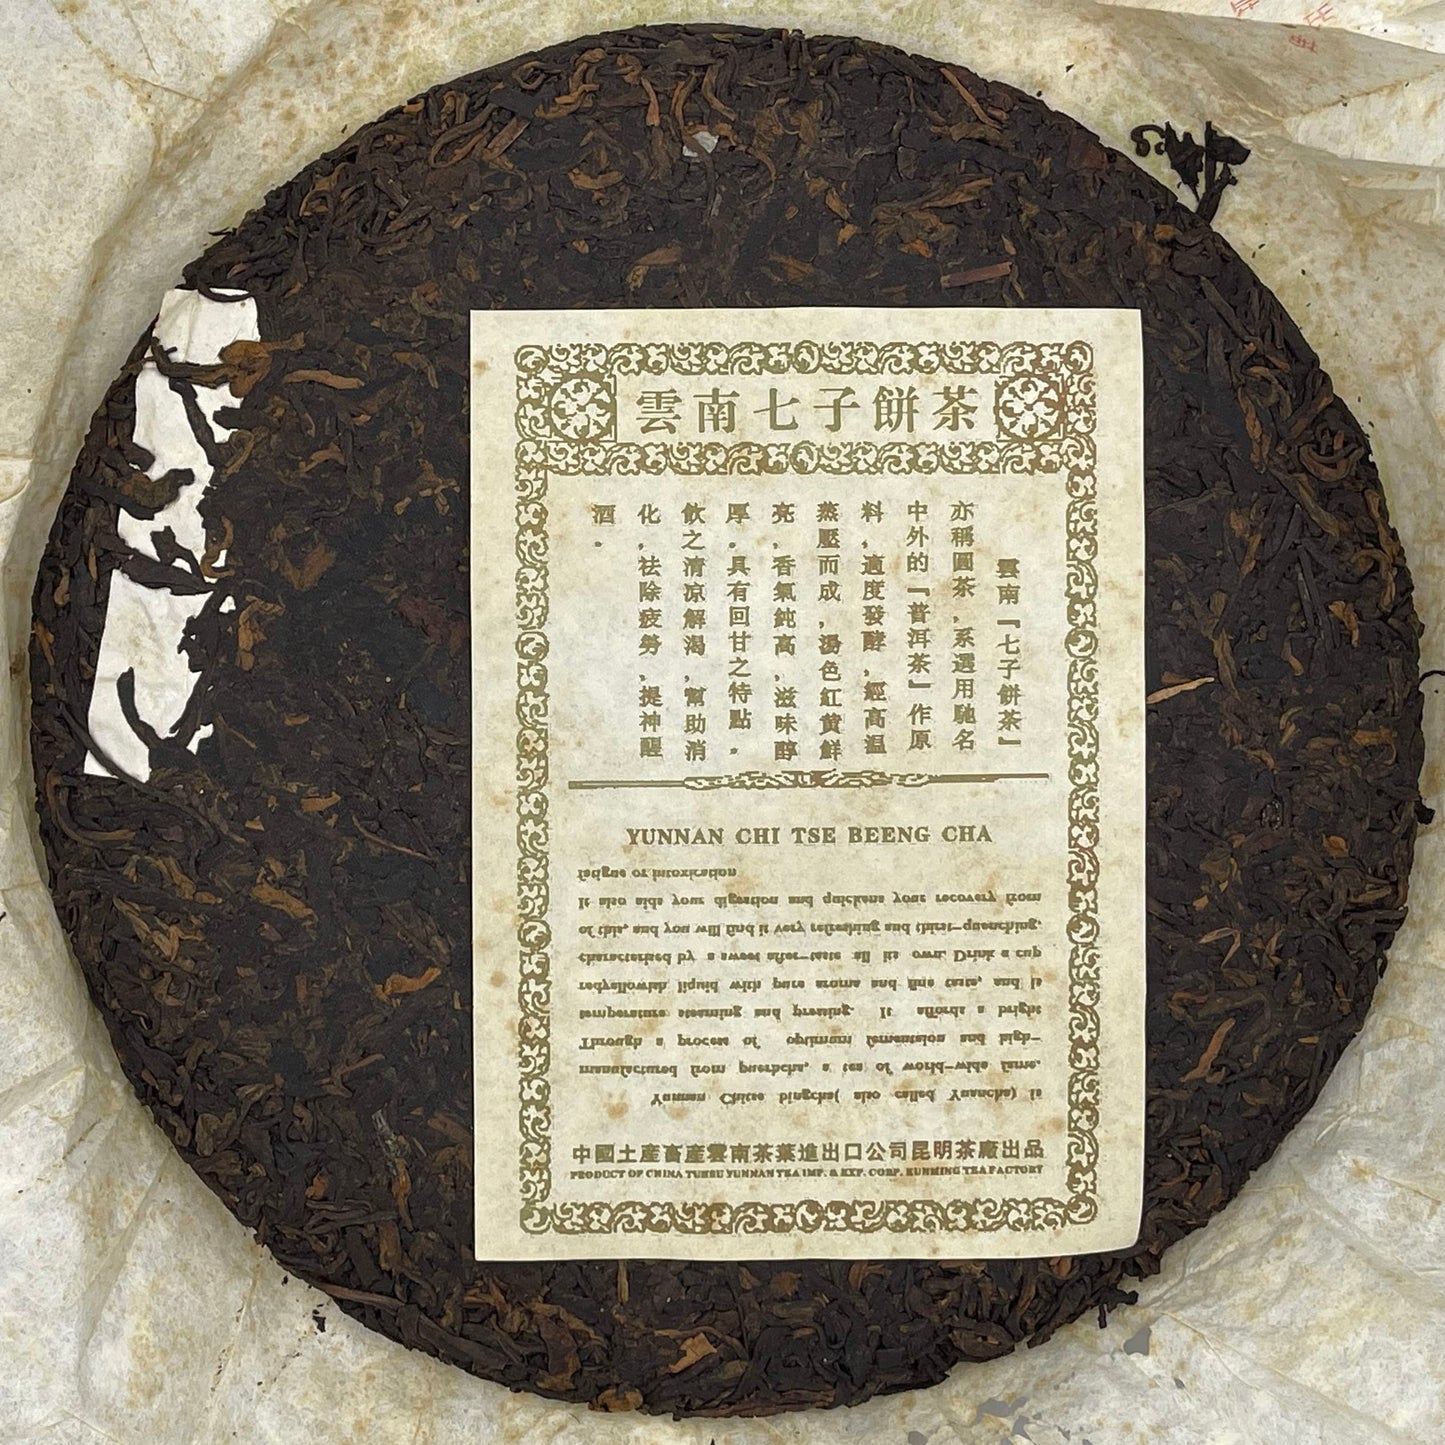 雲南七子餅茶
雲南『七子餅茶』
亦稱圓茶,系選用馳名
中外的『普洱茶』作原
料,適度發酵,經高温
蒸壓而成,湯色紅黄鮮
亮,香氣純高,滋味醇
厚。具有回甘之特點。
飲之清凉解渴,幫助消
化,祛除疲勞,提神醒
酒。
YUNNAN CHI TSE BEENG CHA
Yunnan Chitse bingcha( also called Yuancha) is
manufactured from puerhcha, a tea of world-wide fame.
Through a process of optimum fementsion and high-
temperature steaming and pressing. It affords a bright
redyellowish liquid with pure aroma and fine taste, and is
characterised by a sweet after-taste all its own. Drink a cup
of this, and you will find it very refreshing and thirst-quenching,
It also aids your digestion and quickens your recovery from
fatigue or intoxication
中國土産畜産雲南茶葉進出口公司昆明茶廠出品
PRODUCT OF CHINA TUHSU YUNNAN TEA IMP. & EXP. CORP. KUNMING TEA FACTORY